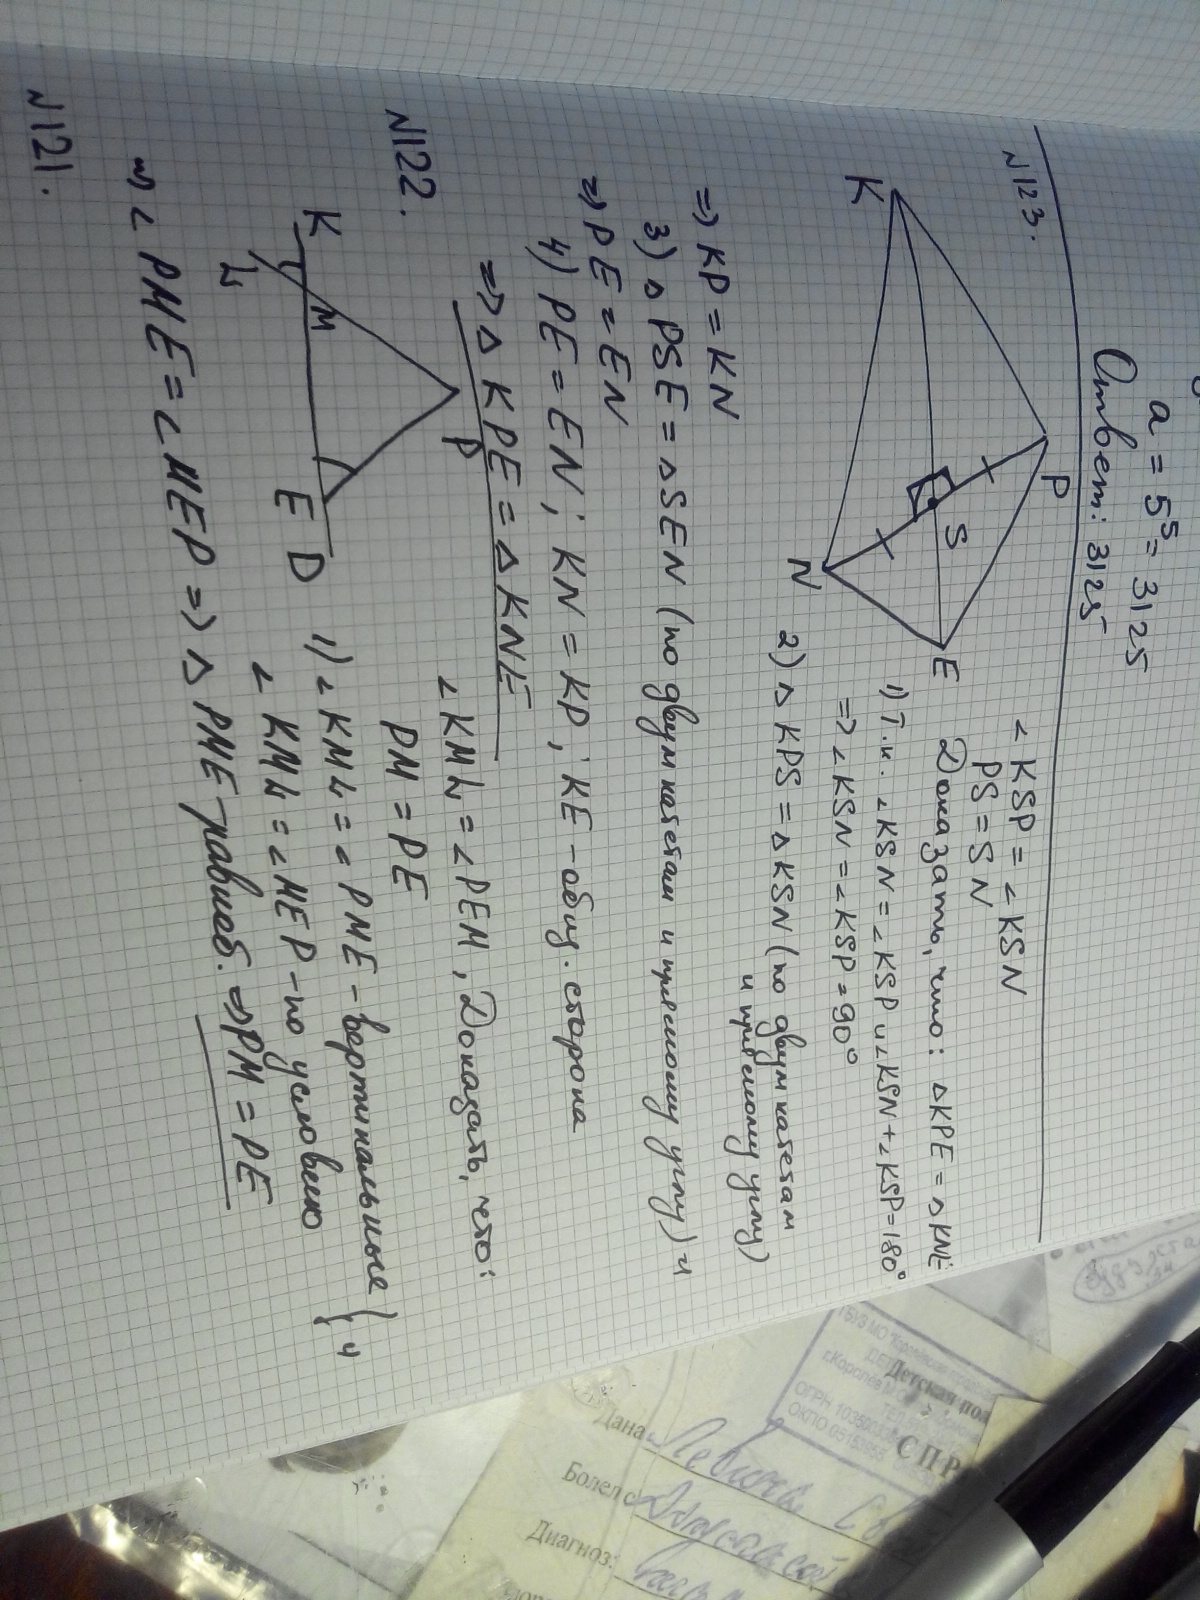 a = 5⁵ = 3125
Ответ: 3125
N123.
K
P
S
N
E
∠KSP = ∠KSN
PS = SN
Доказать, что: △KPE = △KNE
1) Т.к. ∠KSN = ∠KSP и ∠KSN + ∠KSP = 180°
=> ∠KSN = ∠KSP = 90°
2) △KPS = △KSN (по двум катетам
и прямому углу)
=> KP = KN
3) △PSE = △SEN (по двум катетам и прямому углу) и
=> PE = EN
4) PE = EN; KN = KP; KE - общ. сторона
=> △KPE = △KNE
N122.
K
L
M
P
E
D
∠KML = ∠PEM, Доказать, что:
PM = PE
1) ∠KML = ∠PME - вертикальные { и
∠KML = ∠MEP - по условию
=> ∠PME = ∠MEP => △PME - равноб. => PM = PE
N121.
Детская пол
ОКПО 05
СПР
Дана
Болел с
Диагноз: